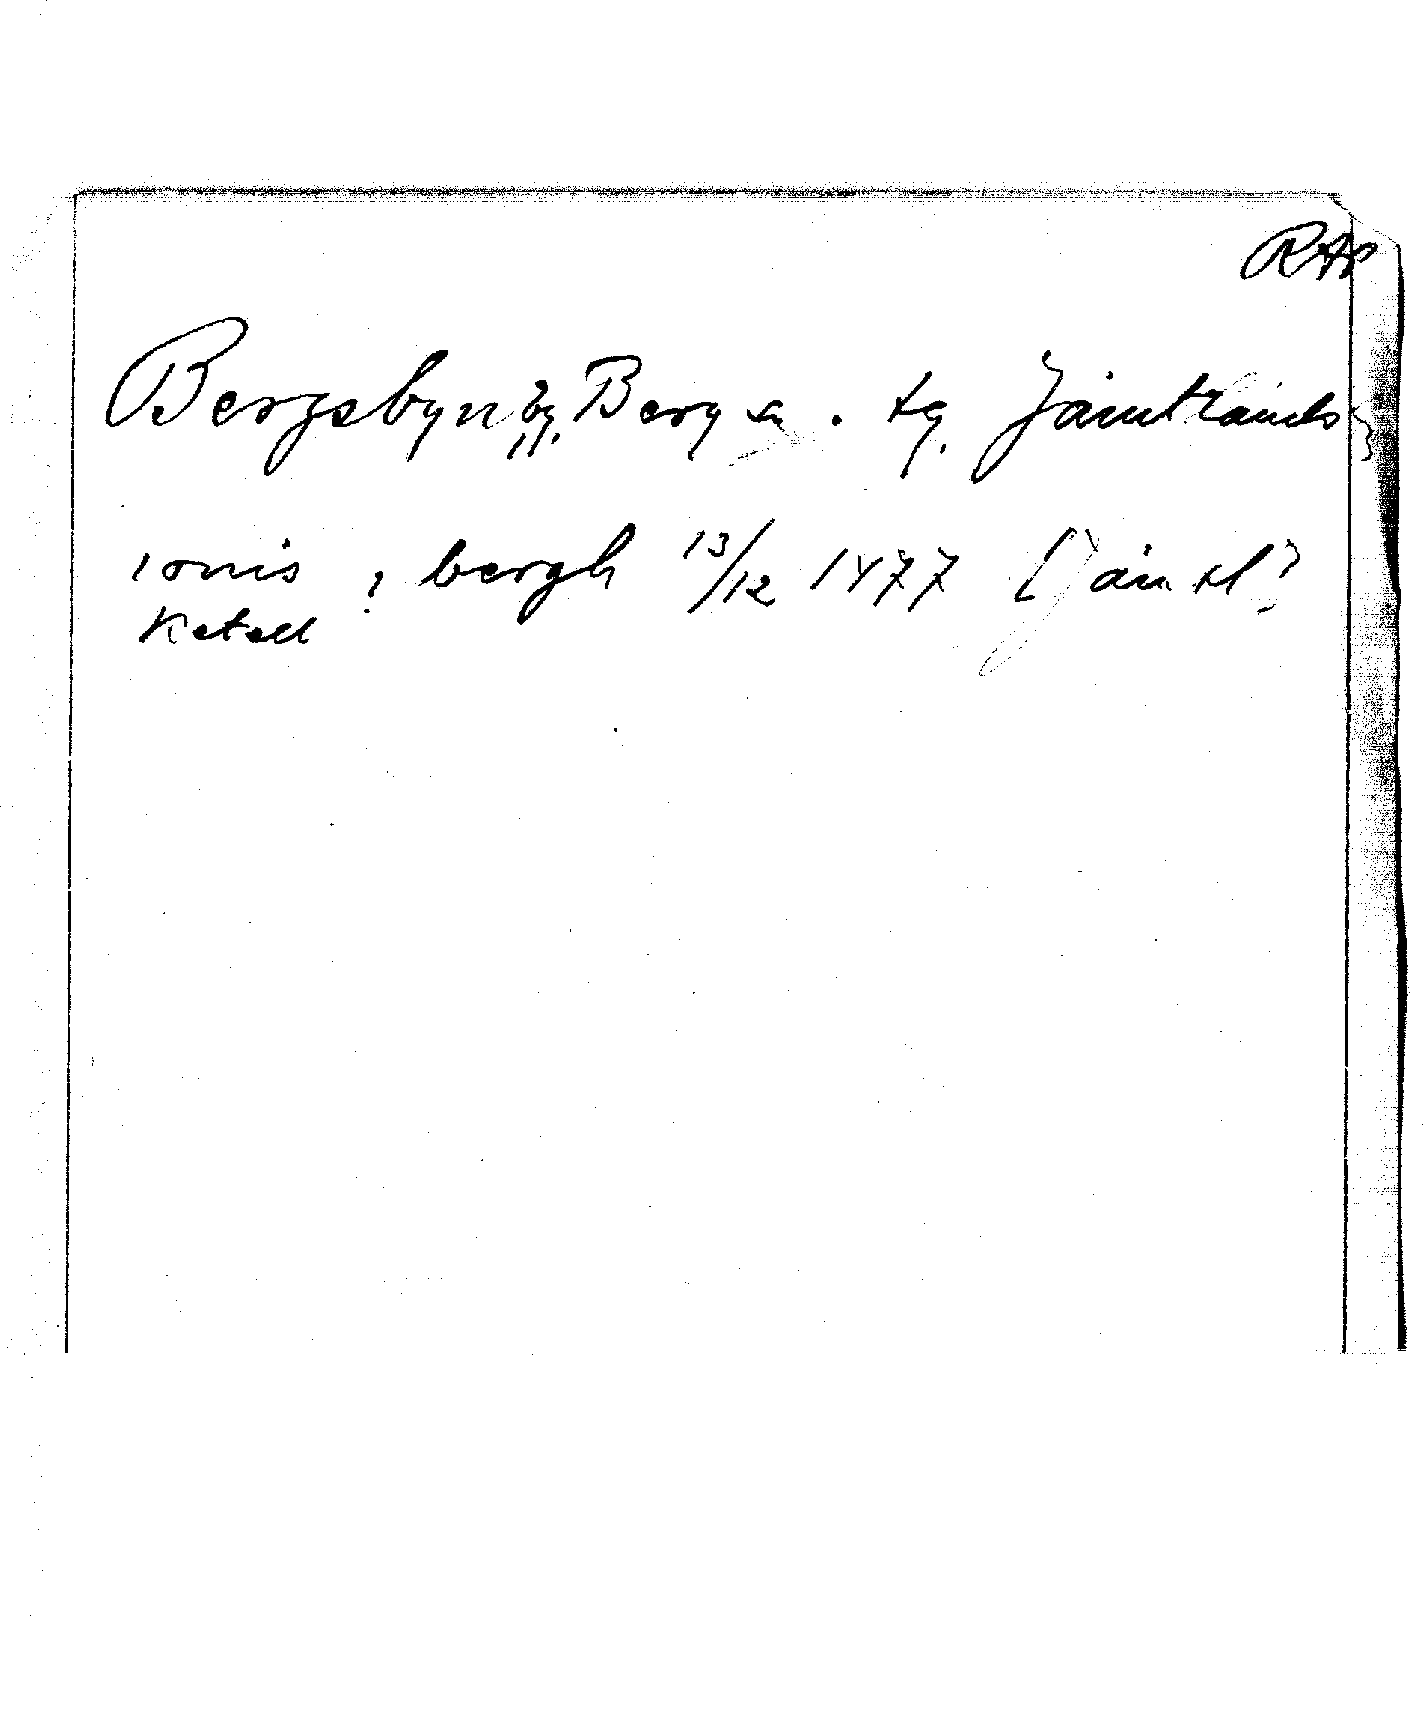 RAp
Bergsbyn, by, Berg sn. tg. Jämtlands
ionis i bergh 13/12 1477 Jämtl
Ketell